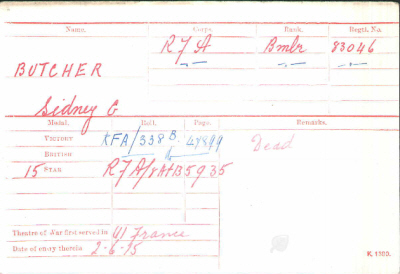 Name. Corps. Rank. Regtl. No.
R F A Bmbr 83046
BUTCHER
Sidney G
Medal. Roll. Page. Remarks.
VICTORY RFA/338 B. Dead
BRITISH
15 STAR R F A/8A+B 5935
Theatre of War first served in (1) France
Date of entry therein 2-6-15
K. 1380.